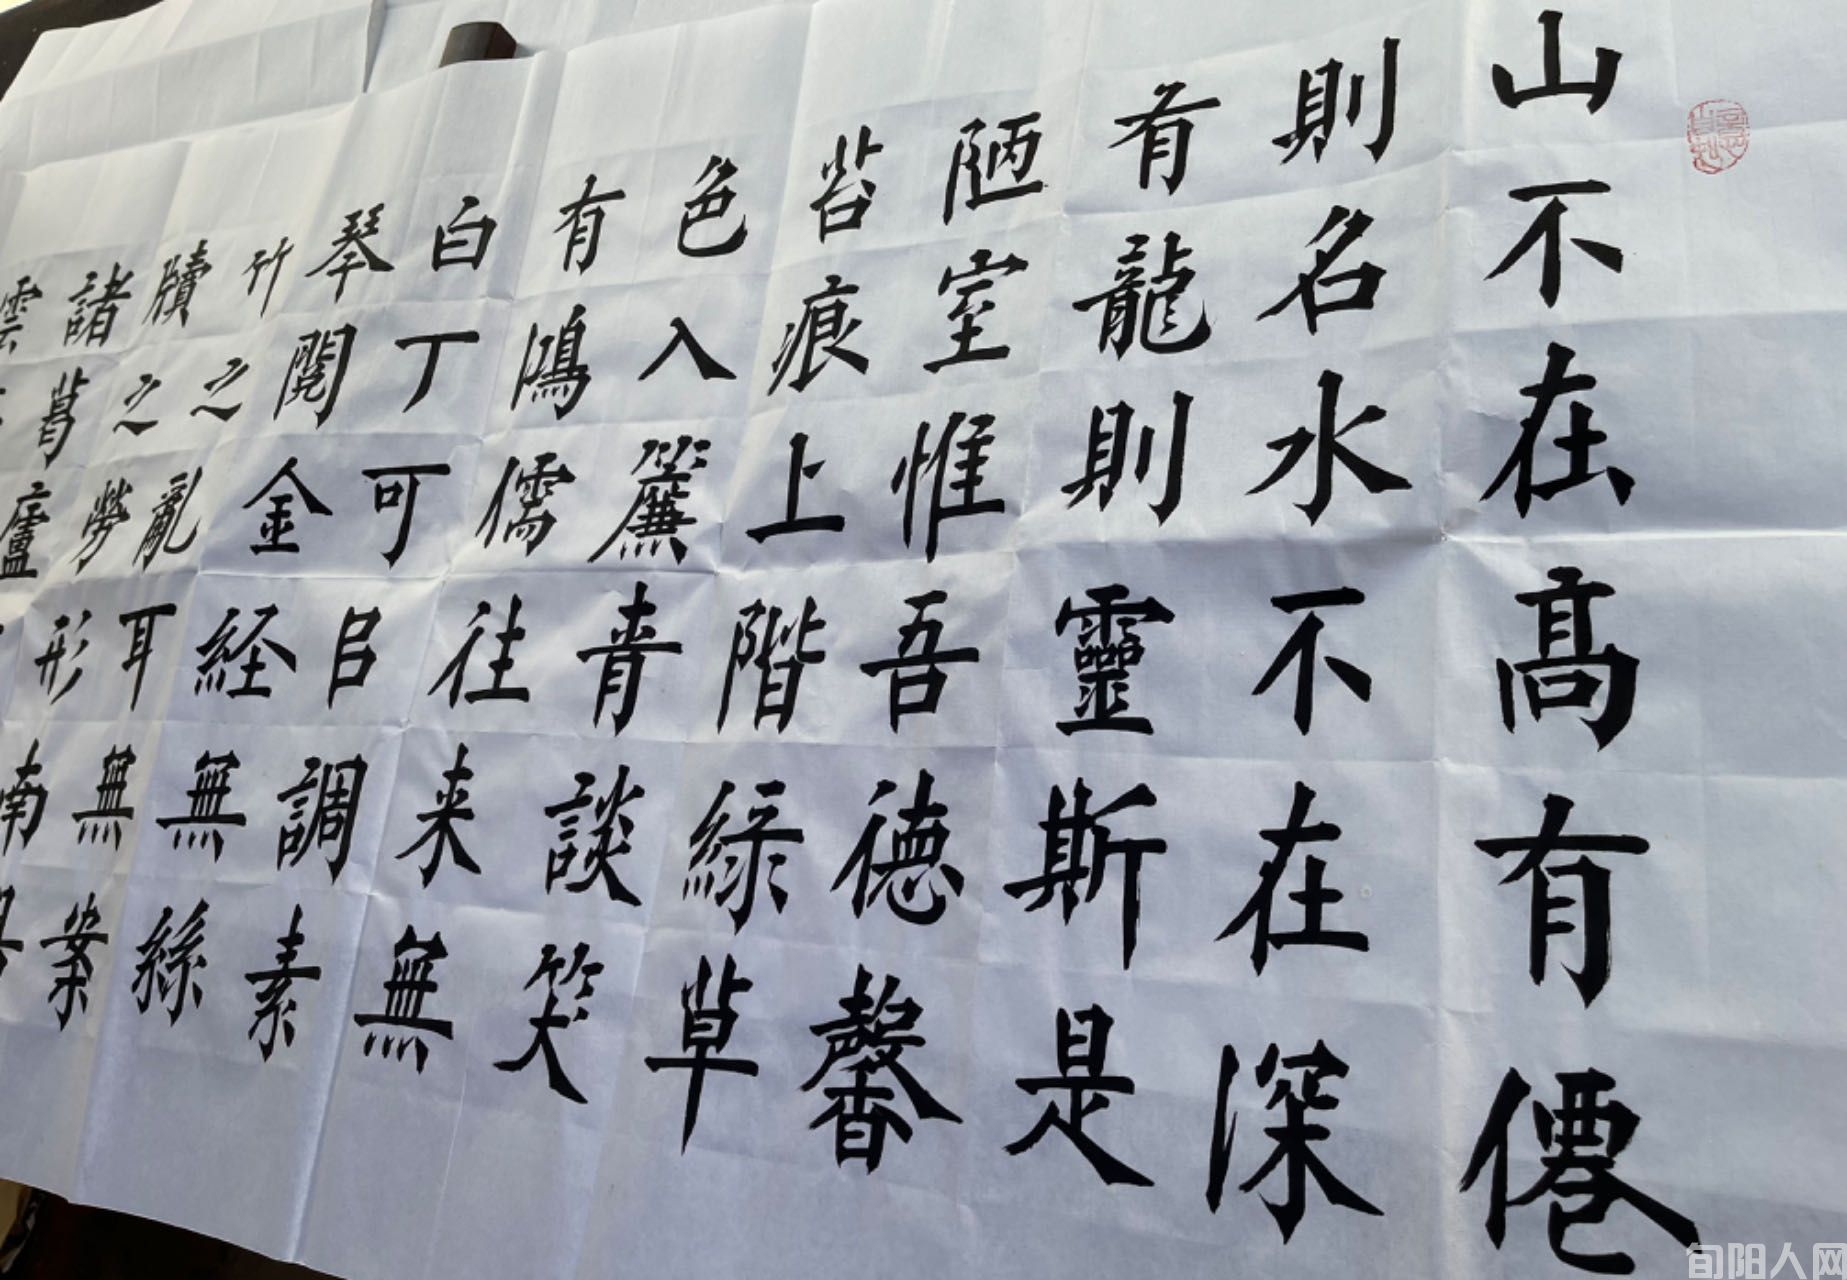 山不在髙有僊
則名水不在深
有龍則靈斯是
陋室惟吾德馨
苔痕上階綠草
色入簾青談笑
有鴻儒往来無
白丁可㠯調素
琴閱金経無絲
竹之亂耳無案
牘之勞形南
諸葛廬
雲
旬阳人网